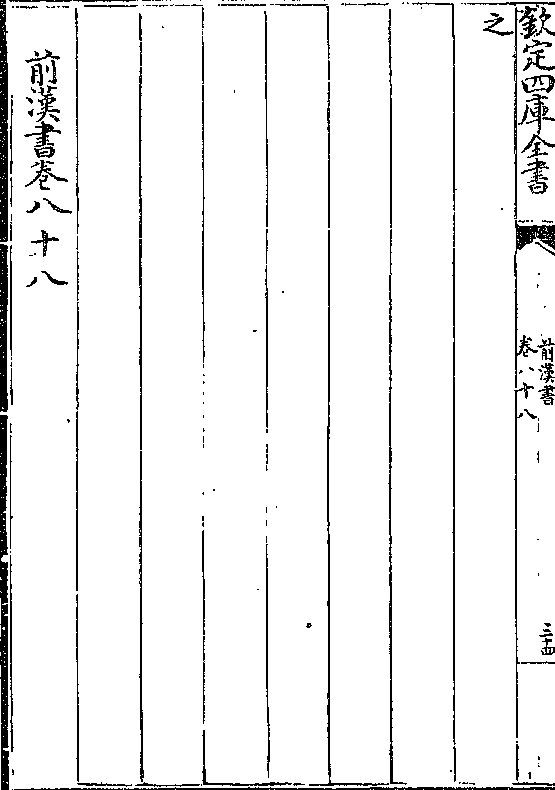 欽定四庫全書
前漢書
卷八十八
三十四
之
前漢書卷八十八